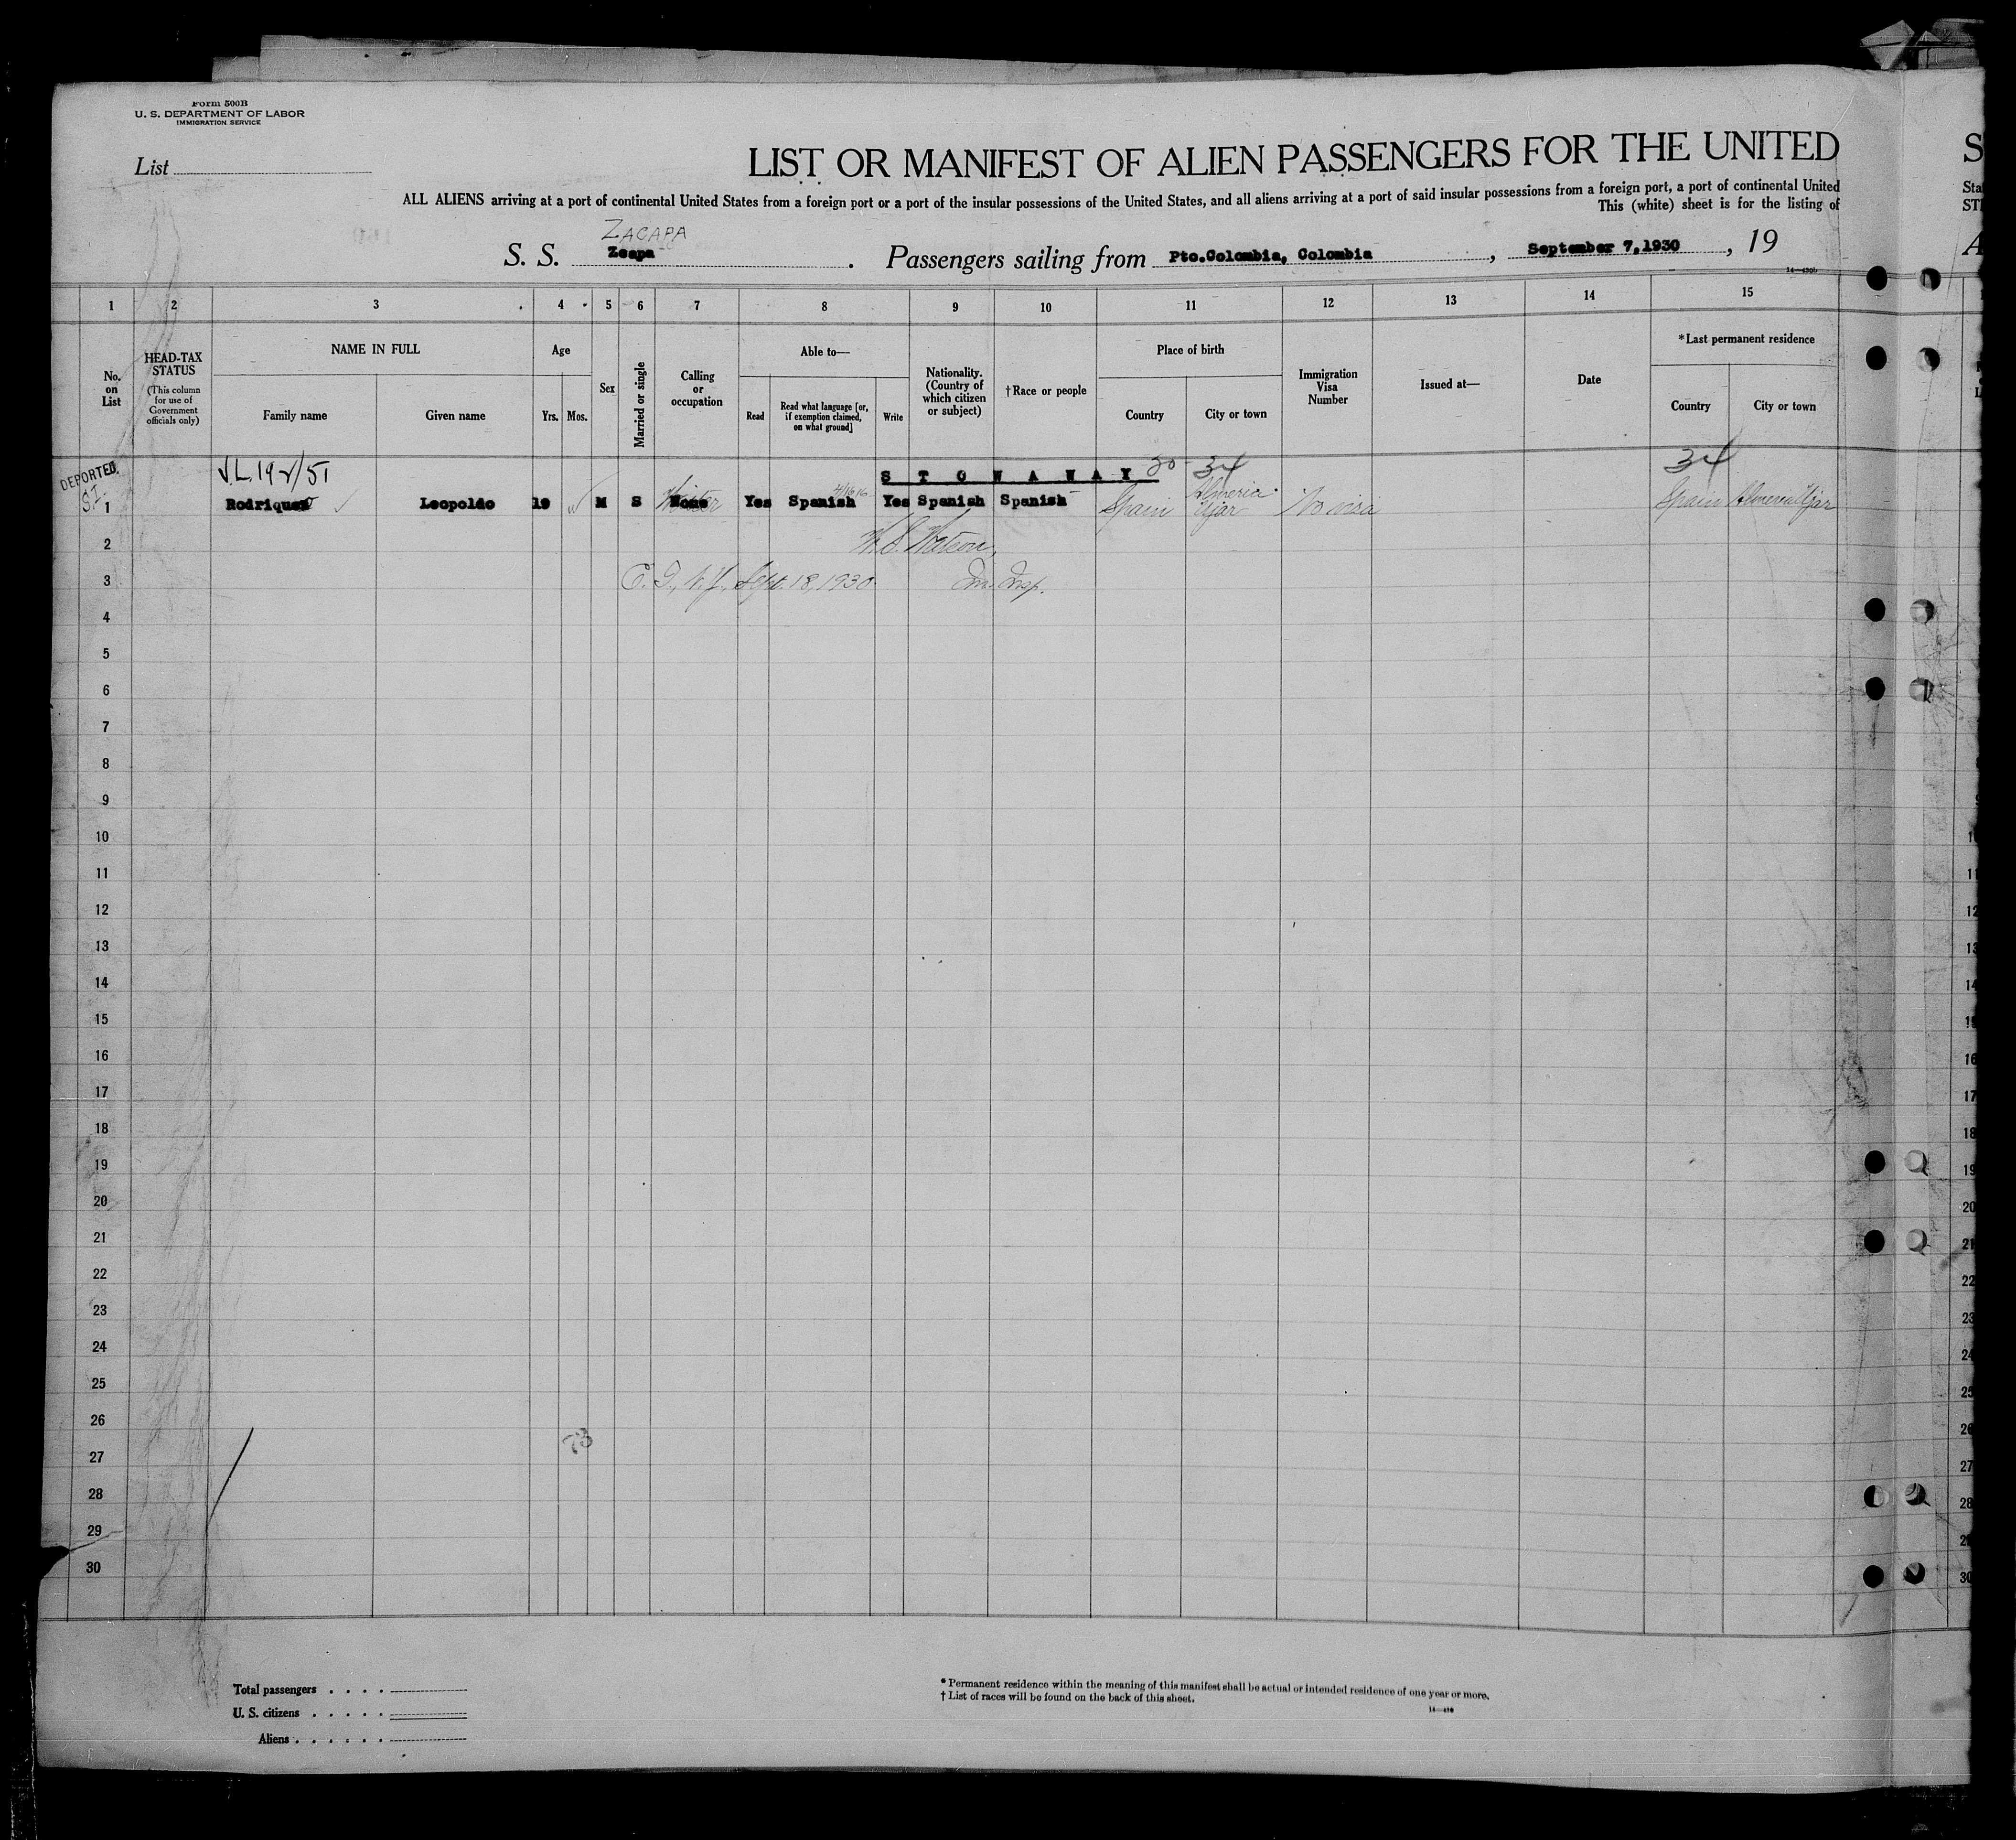 Form 500B
U. S. DEPARTMENT OF LABOR
IMMIGRATION SERVICE
List
LIST OR MANIFEST OF ALIEN PASSENGERS FOR THE UNITED
S
ALL ALIENS arriving at a port of continental United States from a foreign port or a port of the insular possessions of the United States, and all aliens arriving at a port of said insular possessions from a foreign port, a port of continental United
This (white) sheet is for the listing of
ZACAPA
S. S. Zcapa . Passengers sailing from Pto.Colombia, Colombia , September 7,1930 , 19
1 2 3 4 5 6 7 8 9 10 11 12 13 14 15
No. on List
HEAD-TAX STATUS
(This column for use of Government officials only)
NAME IN FULL
Family name Given name
Age
Yrs. Mos.
Sex
Married or single
Calling or occupation
Able to—
Read
Read what language [or, if exemption claimed, on what ground]
Write
Nationality. (Country of which citizen or subject)
†Race or people
Place of birth
Country City or town
Immigration Visa Number
Issued at—
Date
*Last permanent residence
Country City or town
DEPORTED
S.I.
V.L. 192/51
S T O W A W A Y 34 34
1 Rodriquez Leopoldo 19 M S None Yes Spanish Yes Spanish Spanish Spain Almeria Nijar No visa Spain Almeria Nijar
2
W. S. Watson
3 E. I., N.Y., Sept. 18, 1930 Im. Insp.
4
5
6
7
8
9
10
11
12
13
14
15
16
17
18
19
20
21
22
23
24
25
26
73
27
28
29
30
Total passengers
U. S. citizens
Aliens
* Permanent residence within the meaning of this manifest shall be actual or intended residence of one year or more.
† List of races will be found on the back of this sheet.
14—430